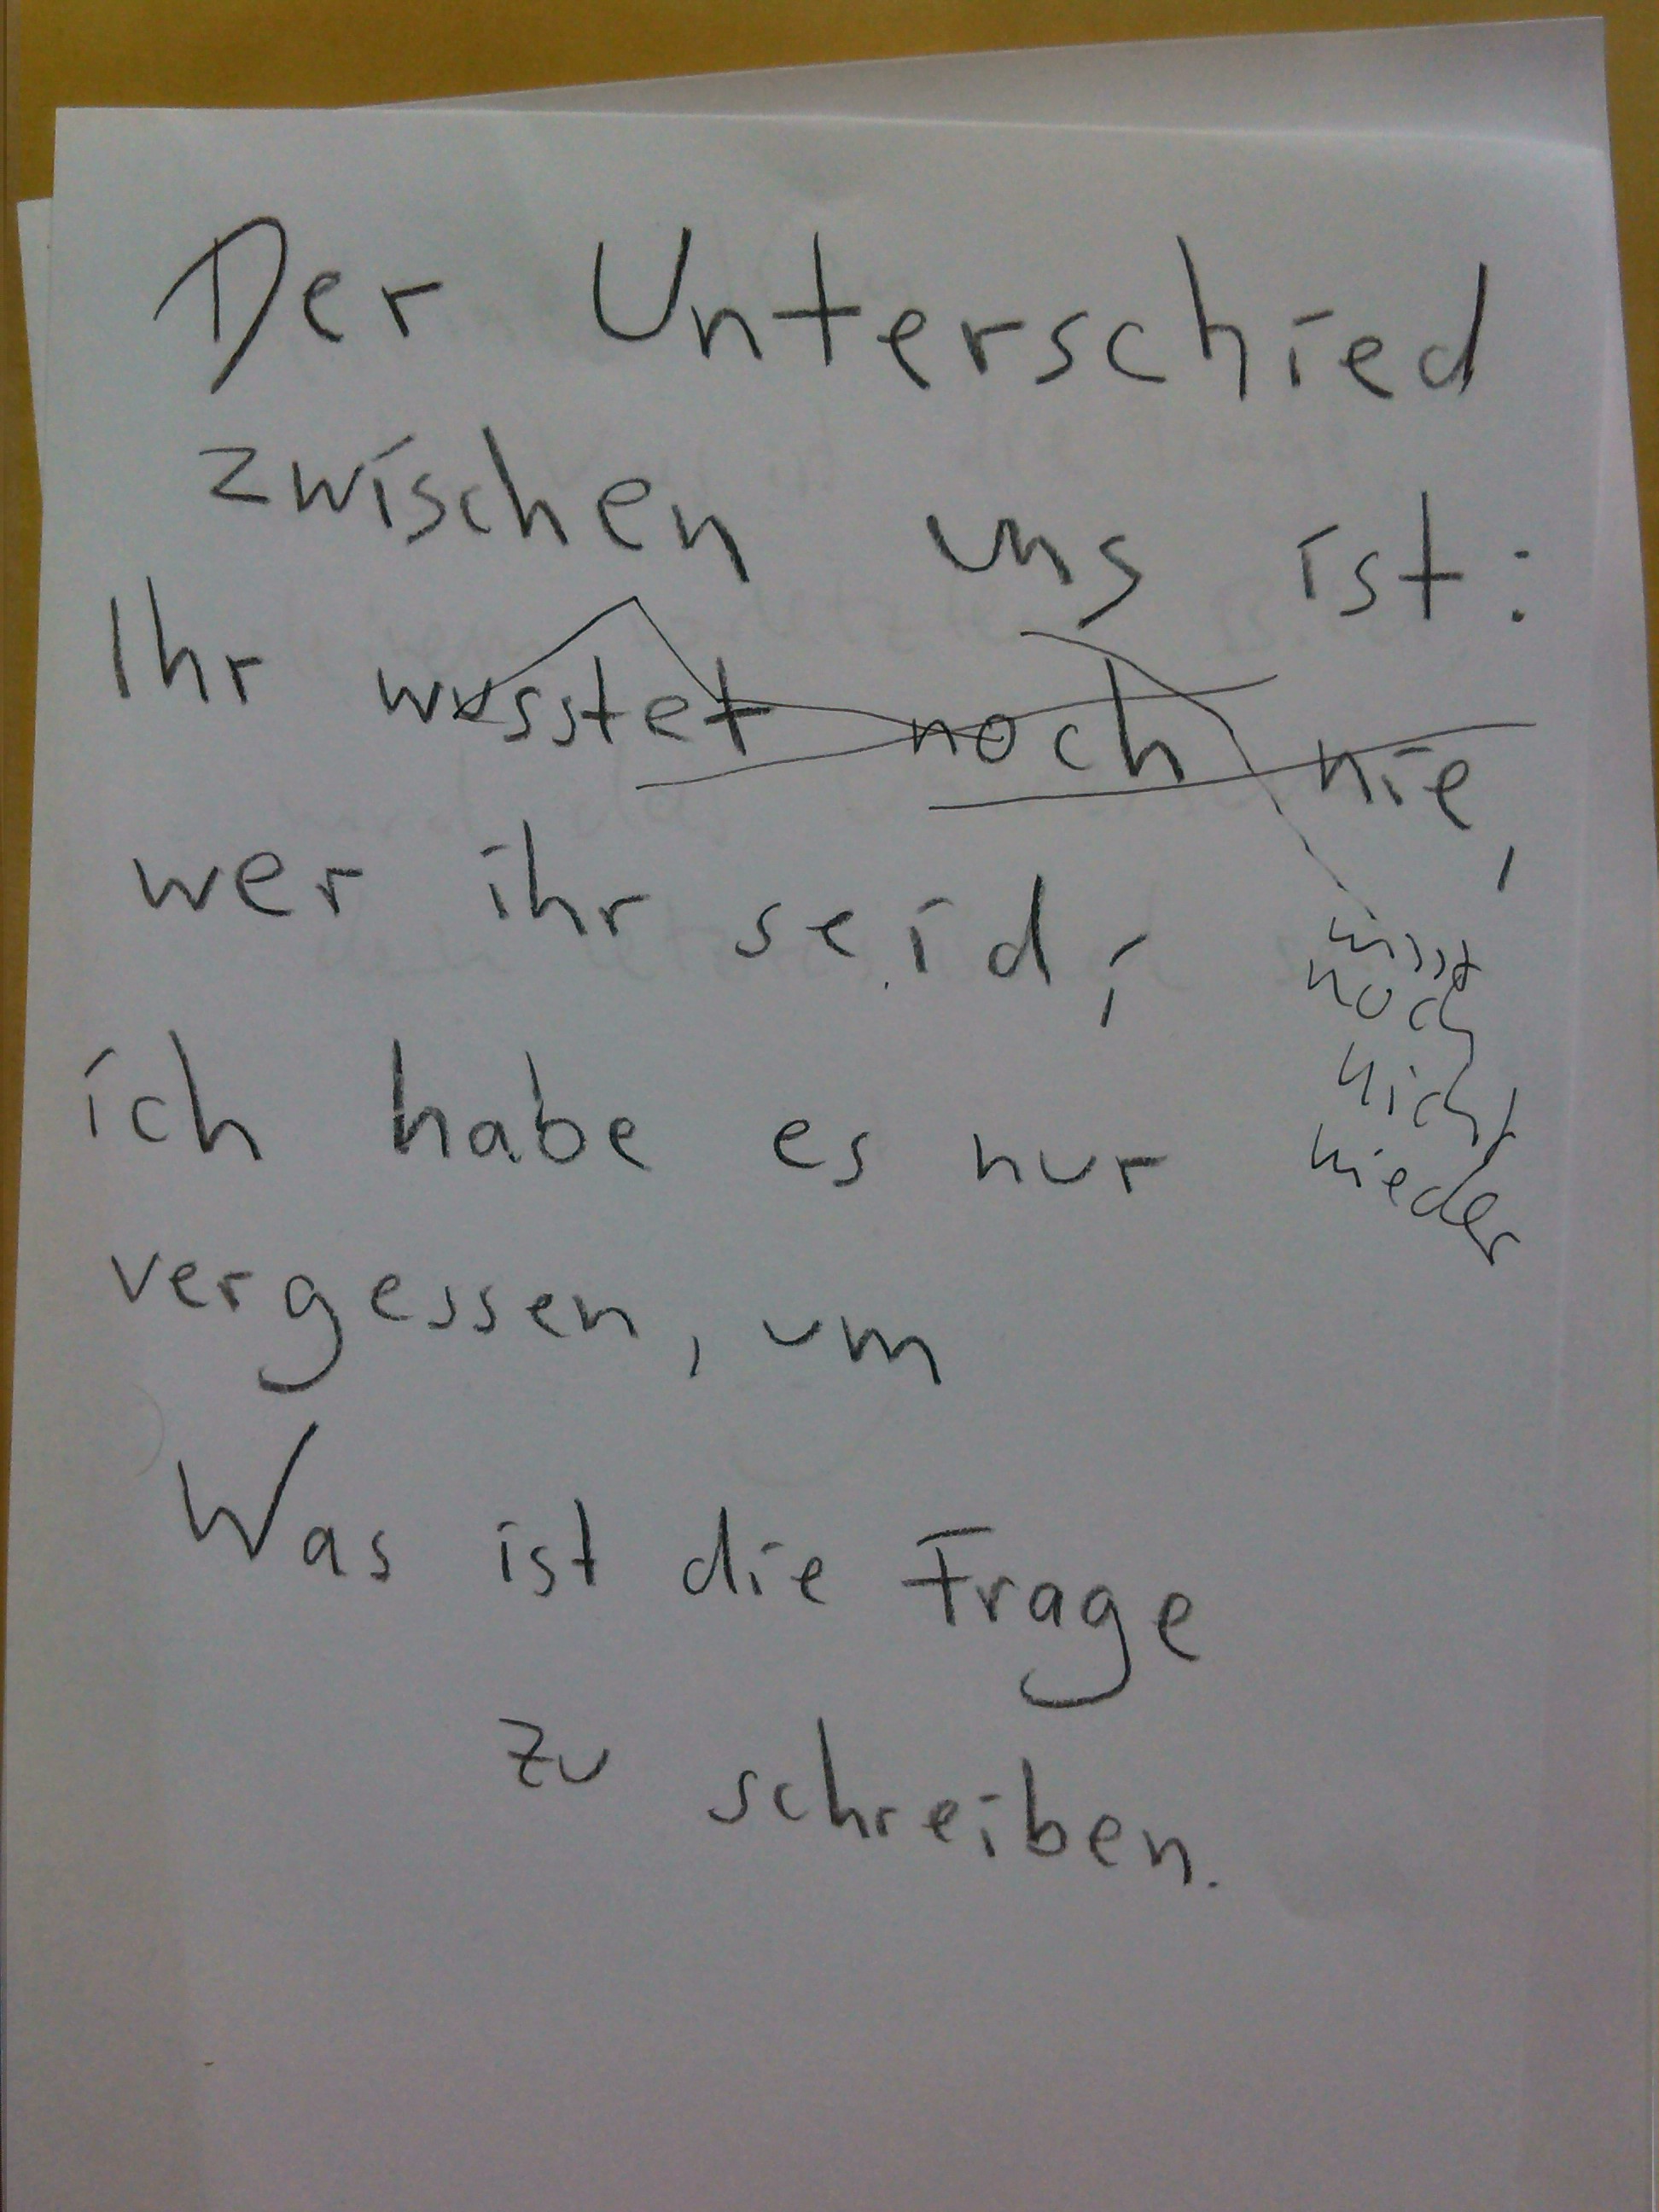 Der Unterschied
zwischen uns ist:
Ihr wusstet noch nie,
wer ihr seid;
wisst
noch
nicht
wieder
ich habe es nur
vergessen, um
Was ist die Frage
zu schreiben.